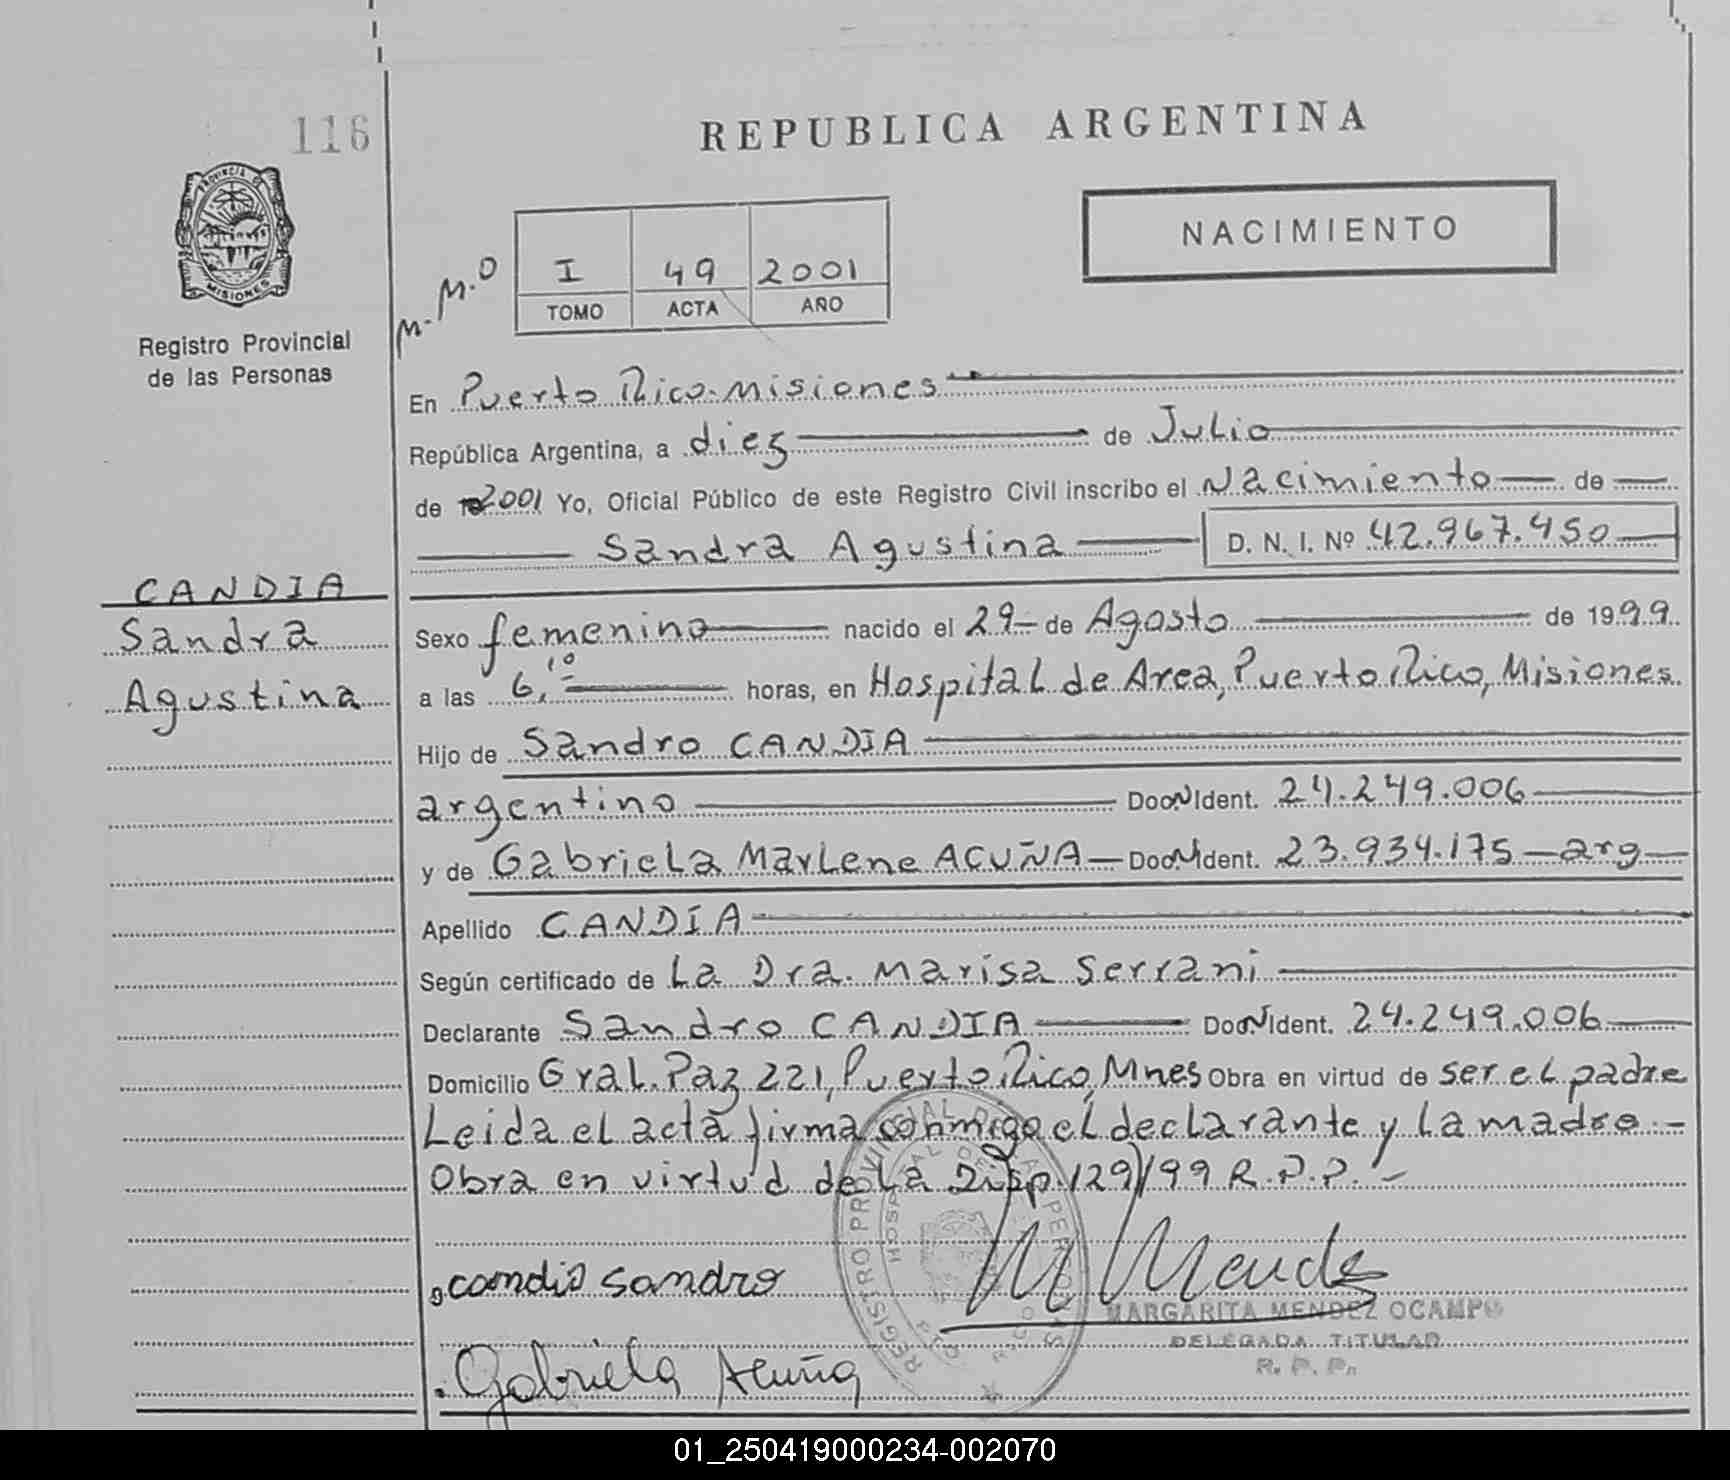 116
REPUBLICA ARGENTINA
PROVINCIA DE
MISIONES
NACIMIENTO
M. M.O
I 49 2001
TOMO ACTA AÑO
Registro Provincial
de las Personas
En Puerto Rico-Misiones
República Argentina, a diez de Julio
de 2001 Yo, Oficial Público de este Registro Civil inscribo el Nacimiento de
Sandra Agustina D. N. I. Nº 42.967.450
CANDIA
Sandra
Agustina
Sexo femenino nacido el 29 de Agosto de 1999.
a las 6,10 horas, en Hospital de Area, Puerto Rico, Misiones.
Hijo de Sandro CANDIA
argentino Doc. Ident. 24.249.006
y de Gabriela Marlene ACUÑA Doc. Ident. 23.934.175 - arg
Apellido CANDIA
Según certificado de La Dra. Marisa Serrani
Declarante Sandro CANDIA Doc. Ident. 24.249.006
Domicilio Gral. Paz 221, Puerto Rico, Mnes Obra en virtud de ser el padre
Leida el acta firma conmigo el declarante y la madre.-
Obra en virtud de la Disp. 129/99 R.P.P.-
REGISTRO PROVINCIAL DE LAS PERSONAS
candia sandro
M Mendez
MARGARITA MENDEZ OCAMPO
DELEGADA TITULAR
R. P. P.
Gabriela Acuña
01_250419000234-002070